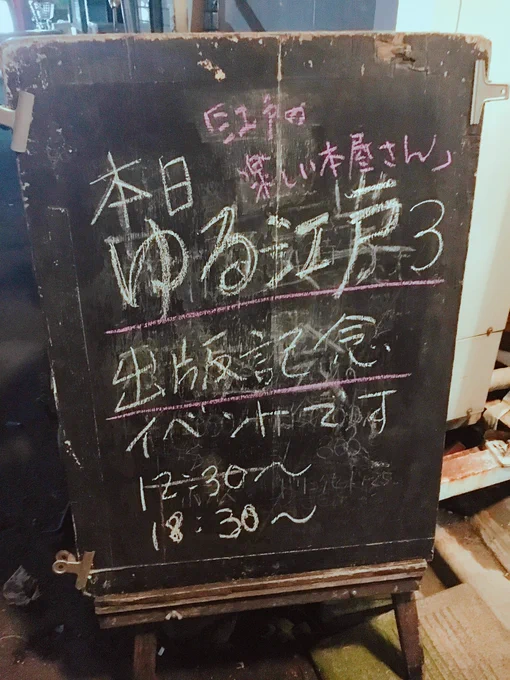 「江戸の
楽しい本屋さん」
本日
ゆる江戸3
出版記念
イベントです
12:30〜
18:30〜